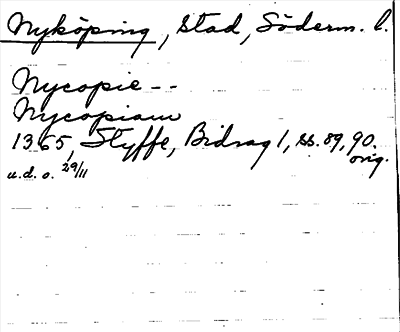 Nyköping, stad, Söderm. l.
Nycopie--
Nycopiam
1365, Styffe, Bidrag 1, ss. 89, 90.
orig.
u.d. o. 29/11